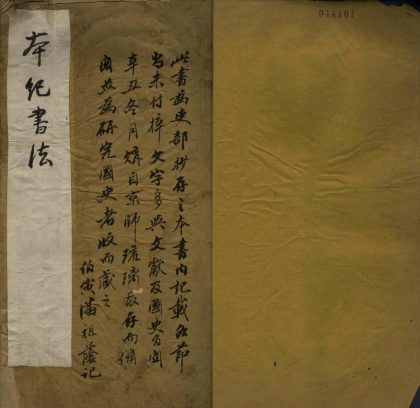 044101
此書為史部抄存之本書内記載各節
尚未付梓文字多與文獻及國史有關
辛丑冬月購自京師琉璃厰存而備
閱此為研究國史者收而藏之
伯寅潘祖蔭記
本紀書法